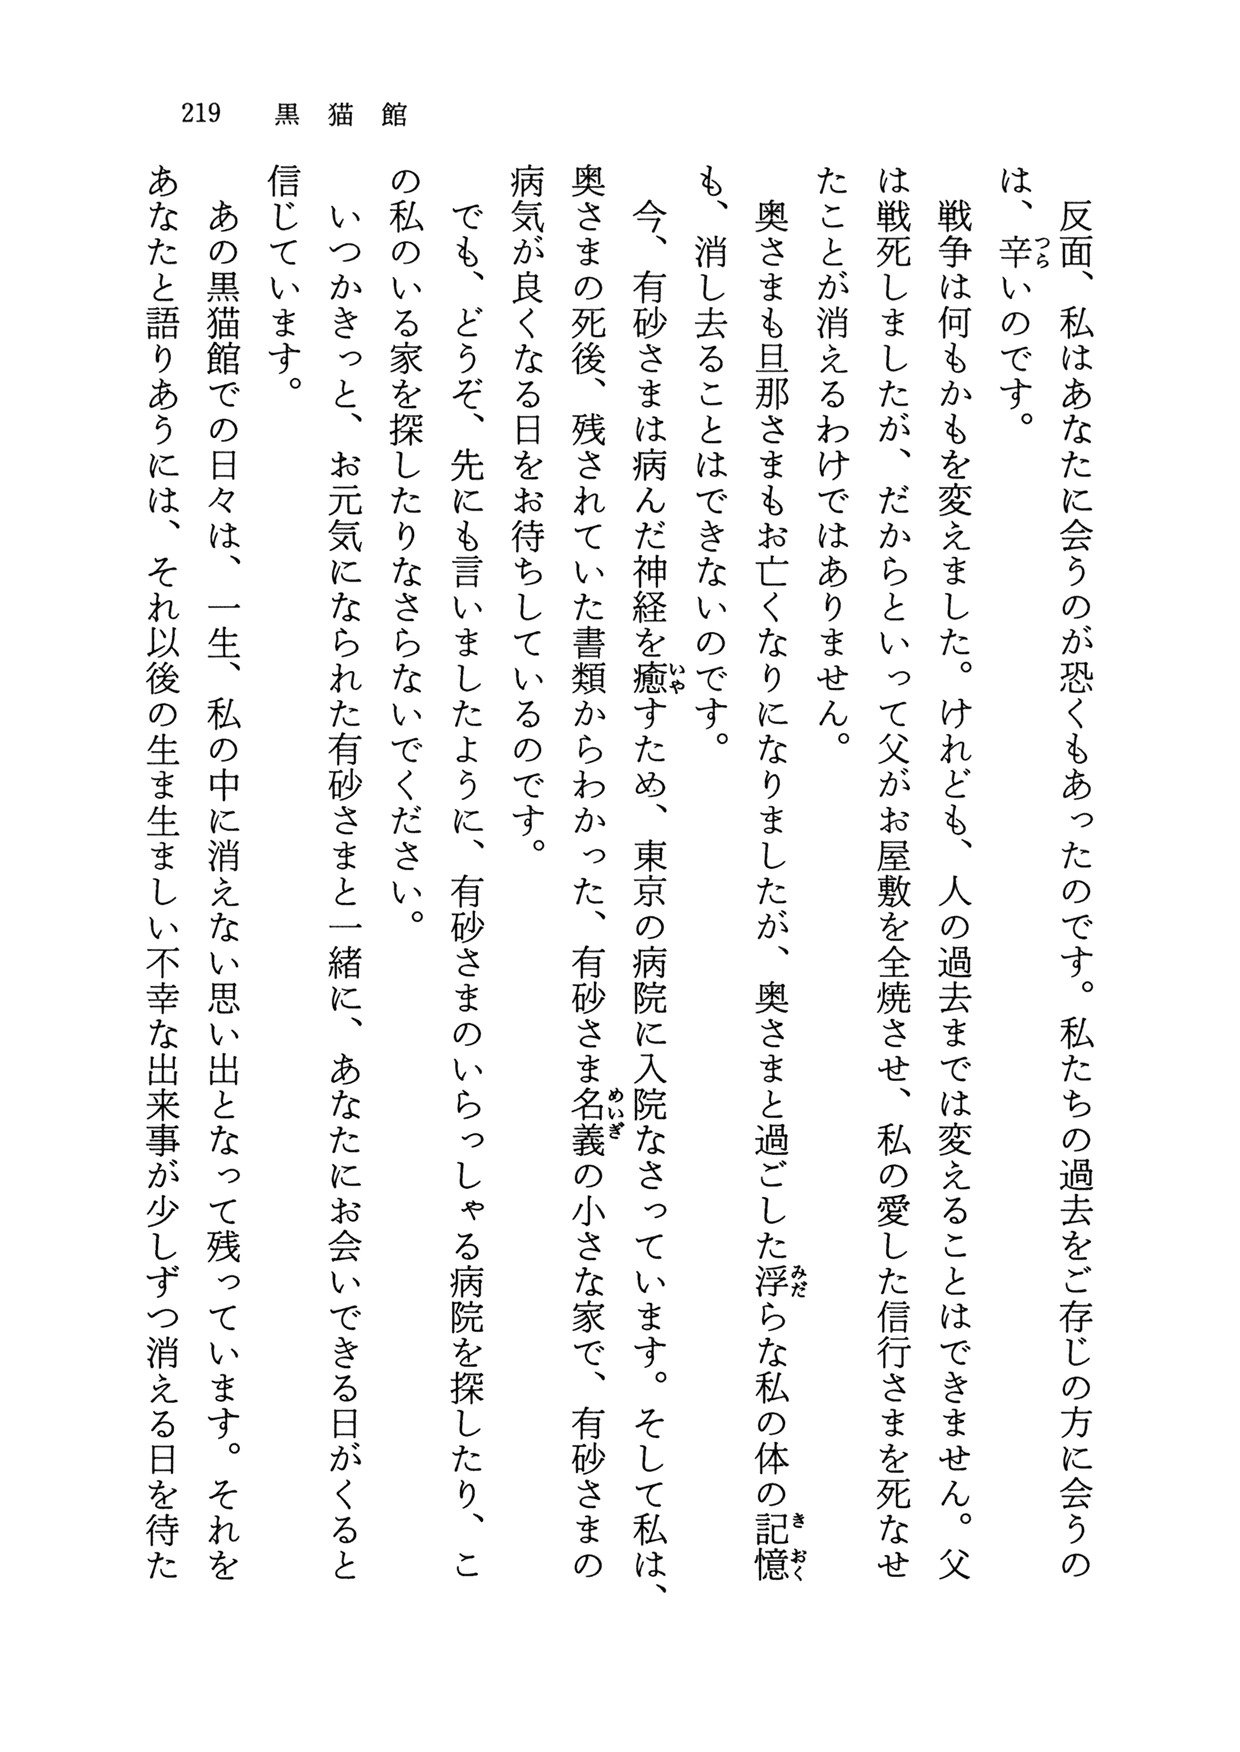 219　黒猫館
反面、私はあなたに会うのが恐くもあったのです。私たちの過去をご存じの方に会うの
は、辛いのです。
戦争は何もかもを変えました。けれども、人の過去までは変えることはできません。父
は戦死しましたが、だからといって父がお屋敷を全焼させ、私の愛した信行さまを死なせ
たことが消えるわけではありません。
奥さまも旦那さまもお亡くなりになりましたが、奥さまと過ごした浮らな私の体の記憶
も、消し去ることはできないのです。
今、有砂さまは病んだ神経を癒すため、東京の病院に入院なさっています。そして私は、
奥さまの死後、残されていた書類からわかった、有砂さま名義の小さな家で、有砂さまの
病気が良くなる日をお待ちしているのです。
でも、どうぞ、先にも言いましたように、有砂さまのいらっしゃる病院を探したり、こ
の私のいる家を探したりなさらないでください。
いつかきっと、お元気になられた有砂さまと一緒に、あなたにお会いできる日がくると
信じています。
あの黒猫館での日々は、一生、私の中に消えない思い出となって残っています。それを
あなたと語りあうには、それ以後の生ま生ましい不幸な出来事が少しずつ消える日を待た